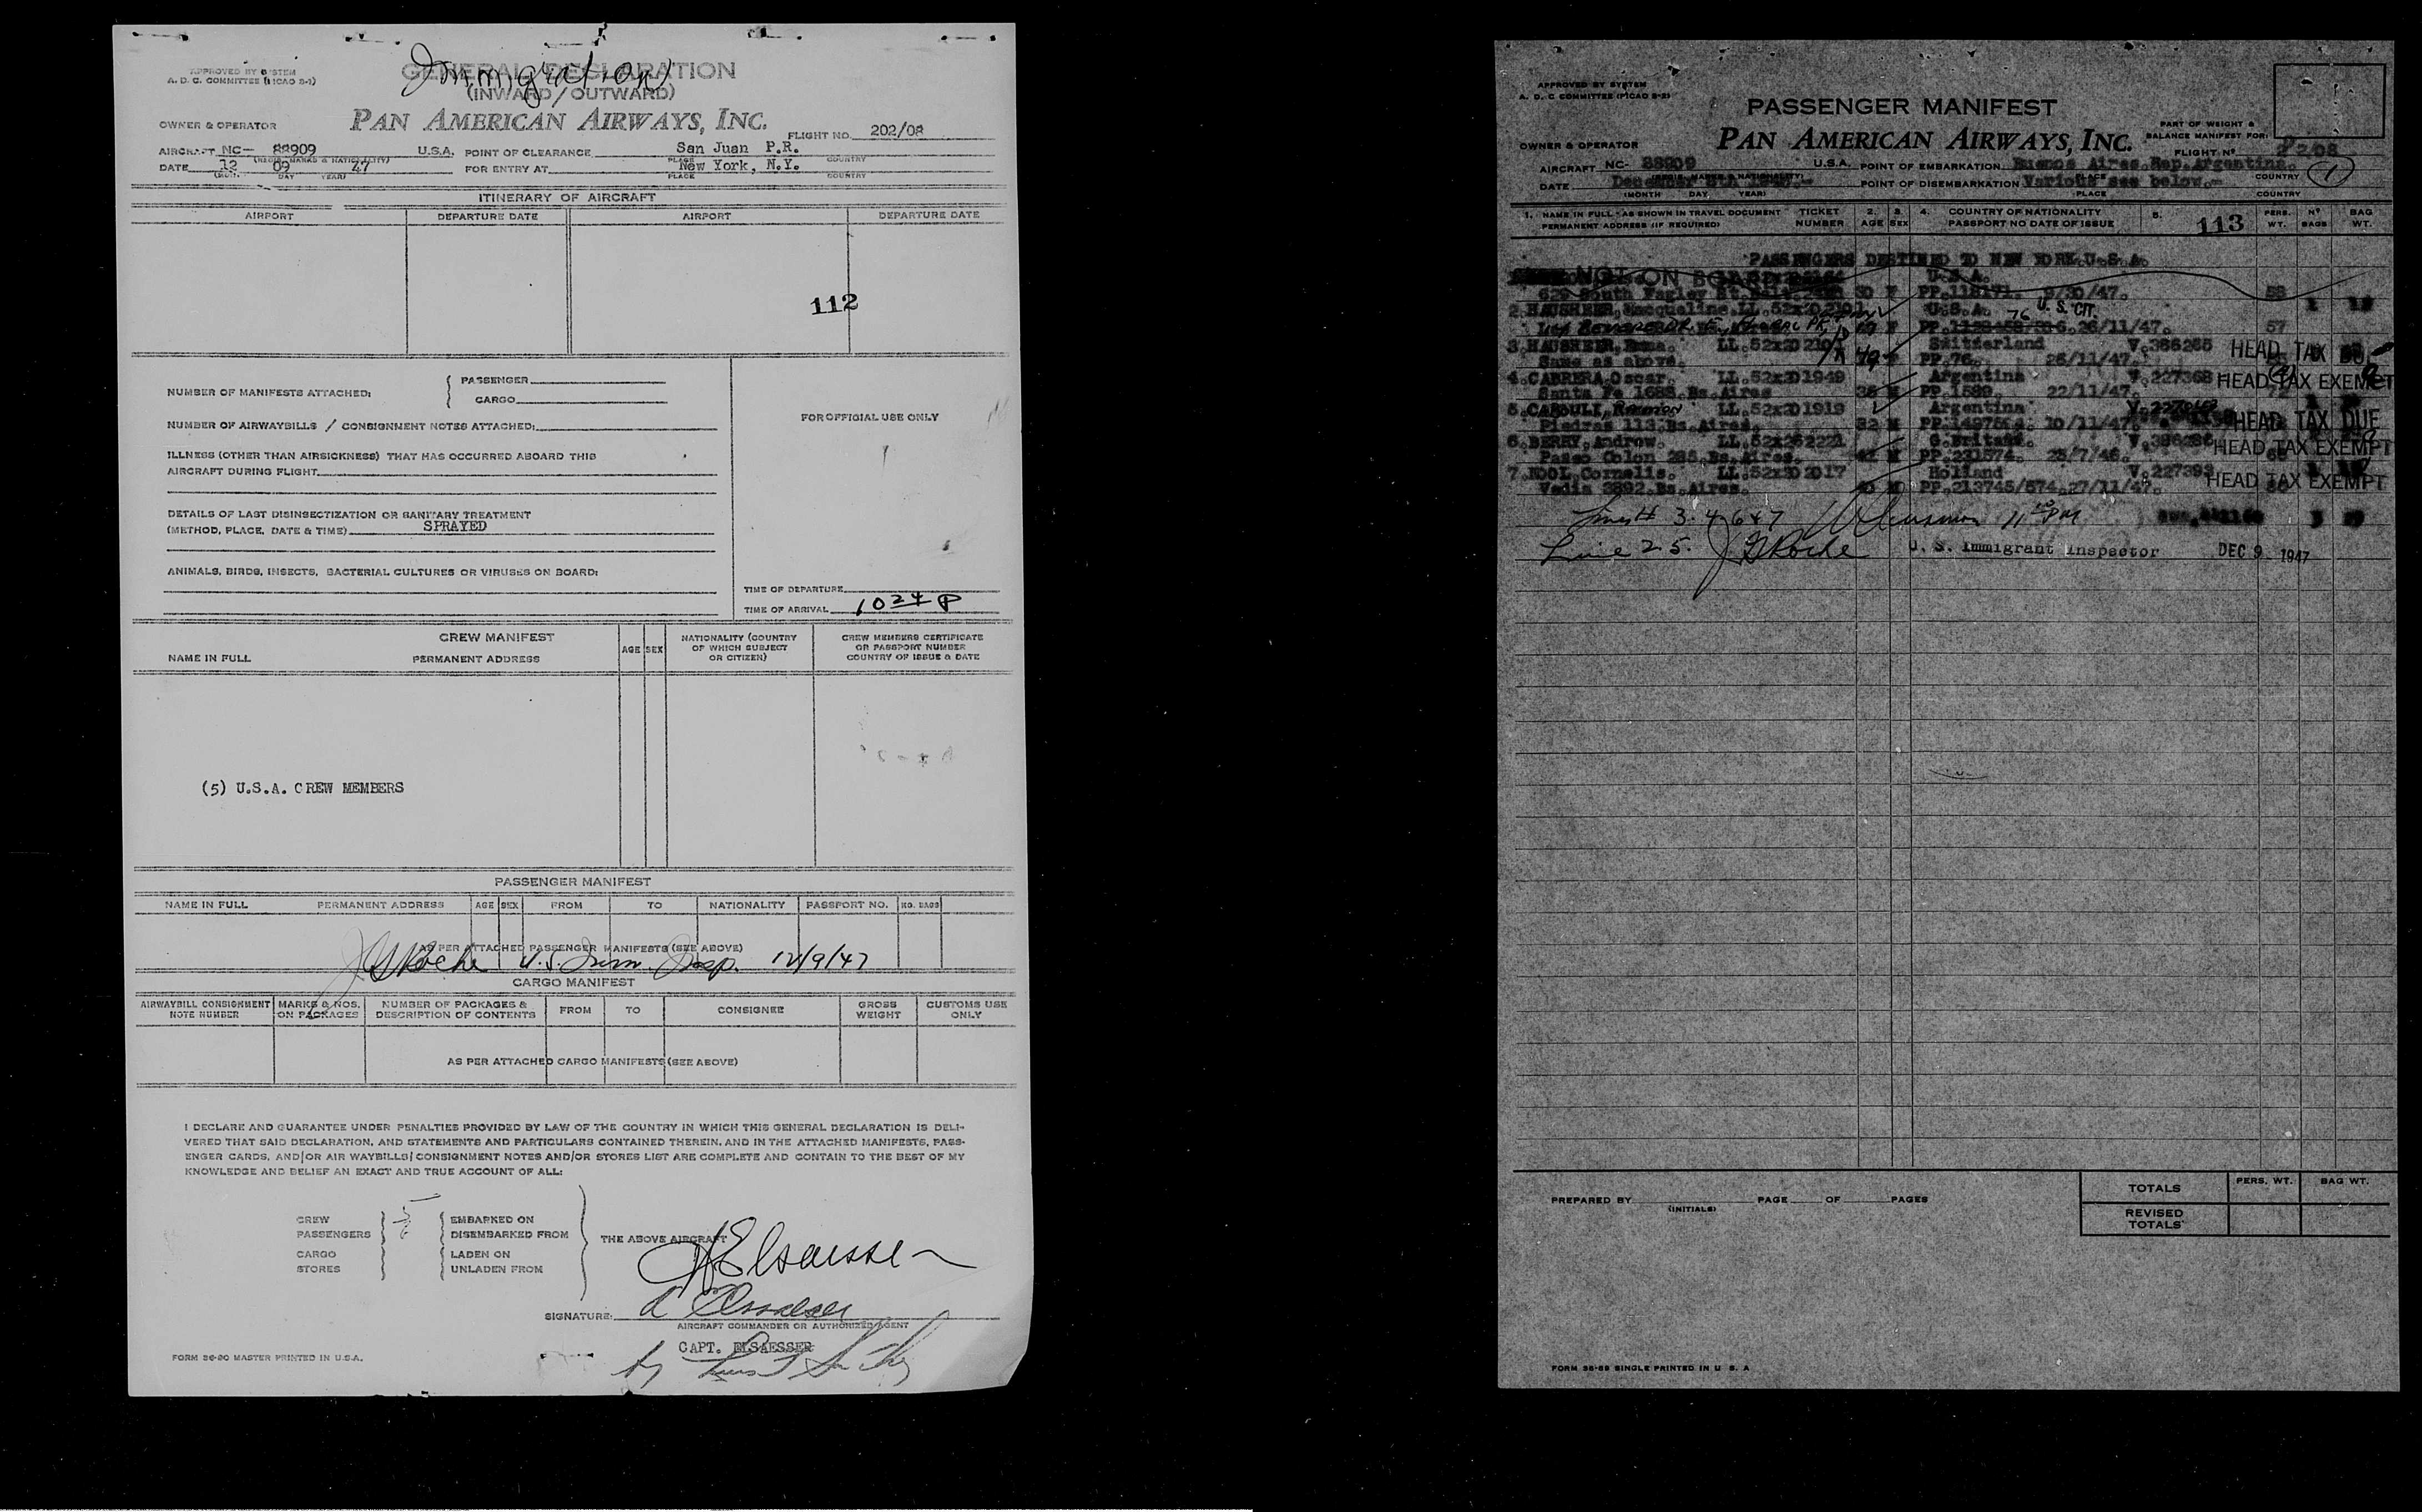 Immigration
APPROVED BY SYSTEM
A. D. C. COMMITTEE (PICAO S-1)
GENERAL DECLARATION
(INWARD/OUTWARD)
OWNER & OPERATOR
PAN AMERICAN AIRWAYS, INC.
FLIGHT NO. 202/08
AIRCRAFT NC- 88909 U.S.A. POINT OF CLEARANCE San Juan P.R.
(REGIS. MARKS & NATIONALITY) PLACE COUNTRY
DATE 12 09 47 FOR ENTRY AT New York, N.Y.
(MON. DAY YEAR) PLACE COUNTRY
ITINERARY OF AIRCRAFT
AIRPORT DEPARTURE DATE AIRPORT DEPARTURE DATE
112
NUMBER OF MANIFESTS ATTACHED: PASSENGER
CARGO
FOR OFFICIAL USE ONLY
NUMBER OF AIRWAYBILLS / CONSIGNMENT NOTES ATTACHED:
ILLNESS (OTHER THAN AIRSICKNESS) THAT HAS OCCURRED ABOARD THIS
AIRCRAFT DURING FLIGHT
DETAILS OF LAST DISINSECTIZATION OR SANITARY TREATMENT
(METHOD, PLACE, DATE & TIME) SPRAYED
ANIMALS, BIRDS, INSECTS, BACTERIAL CULTURES OR VIRUSES ON BOARD:
TIME OF DEPARTURE
TIME OF ARRIVAL 1024 P
CREW MANIFEST
NAME IN FULL PERMANENT ADDRESS
AGE SEX
NATIONALITY (COUNTRY
OF WHICH SUBJECT
OR CITIZEN)
CREW MEMBERS CERTIFICATE
OR PASSPORT NUMBER
COUNTRY OF ISSUE & DATE
(5) U.S.A. CREW MEMBERS
PASSENGER MANIFEST
NAME IN FULL PERMANENT ADDRESS AGE SEX FROM TO NATIONALITY PASSPORT NO. NO. BAGS
AS PER ATTACHED PASSENGER MANIFESTS (SEE ABOVE)
J G Roche U.S. Imm. Insp. 12/9/47
CARGO MANIFEST
AIRWAYBILL CONSIGNMENT
NOTE NUMBER
MARKS & NOS.
ON PACKAGES
NUMBER OF PACKAGES &
DESCRIPTION OF CONTENTS
FROM TO CONSIGNEE
GROSS
WEIGHT
CUSTOMS USE
ONLY
AS PER ATTACHED CARGO MANIFESTS (SEE ABOVE)
I DECLARE AND GUARANTEE UNDER PENALTIES PROVIDED BY LAW OF THE COUNTRY IN WHICH THIS GENERAL DECLARATION IS DELI-
VERED THAT SAID DECLARATION, AND STATEMENTS AND PARTICULARS CONTAINED THEREIN, AND IN THE ATTACHED MANIFESTS, PASS-
ENGER CARDS, AND/OR AIR WAYBILLS/CONSIGNMENT NOTES AND/OR STORES LIST ARE COMPLETE AND CONTAIN TO THE BEST OF MY
KNOWLEDGE AND BELIEF AN EXACT AND TRUE ACCOUNT OF ALL:
CREW 5 EMBARKED ON
PASSENGERS 6 DISEMBARKED FROM
THE ABOVE AIRCRAFT
CARGO LADEN ON
STORES UNLADEN FROM
A Elsaesser
SIGNATURE: A Elsaesser
AIRCRAFT COMMANDER OR AUTHORIZED AGENT
CAPT. ELSAESSER
by
FORM 36-90 MASTER PRINTED IN U.S.A.
APPROVED BY SYSTEM
A. D. C COMMITTEE (PICAO S-2)
PASSENGER MANIFEST
PART OF WEIGHT &
BALANCE MANIFEST FOR:
OWNER & OPERATOR
PAN AMERICAN AIRWAYS, INC.
FLIGHT Nº 208
AIRCRAFT NC- 88909 U.S.A. POINT OF EMBARKATION Buenos Aires, Rep. Argentina.
(REGIS. MARKS & NATIONALITY) PLACE COUNTRY
1
DATE December 8th POINT OF DISEMBARKATION Various see below.-
(MONTH DAY YEAR) PLACE COUNTRY
1. NAME IN FULL - AS SHOWN IN TRAVEL DOCUMENT TICKET 2. 3. 4. COUNTRY OF NATIONALITY 5. PERS. Nº BAG
PERMANENT ADDRESS (IF REQUIRED) NUMBER AGE SEX PASSPORT NO DATE OF ISSUE 113 WT. BAGS WT.
PASSENGERS DESTINED TO NEW YORK.U.S.A.
NOT ON BOARD U.S.A.
629 South 30 F PP.118171. 9/30/47. 53
2.HAUSHEER, Jacqueline. LL.52x202101 U.S.A. U.S. CIT.
76 26/11/47. 57
3.HAUSHEER, Emma. LL.52x202101 Switzerland V.386265 HEAD TAX DUE
Same as above. 49 PP.76. 26/11/47.
4.CABRERA, Oscar. LL.52x201949 Argentina V.227368 HEAD TAX EXEMPT
Santa Fe 1685.Bs.Aires 36 M PP.1589. 22/11/47. 72
5.CARBULI, Ramon LL.52x201919 Argentina HEAD TAX DUE
Piedras 113.Bs.Aires. 32 M 10/11/47.
6.BERRY, Andrew. LL.52x262221 G.Britain. HEAD TAX EXEMPT
Paseo Colon 285.Bs.Aires. M PP.231574. 25/7/46.
7.KOOL, Cornelis. LL.52x202017 Holland V.227393 HEAD TAX EXEMPT
Vedia 3892.Bs.Aires. 40 M PP.213745/574.27/11/47.
Lines # 3.4.6 & 7 11 PM
Line 2 5. J G Roche U. S. Immigrant Inspector DEC 9 1947
PREPARED BY PAGE OF PAGES
(INITIALS)
PERS. WT. BAG WT.
TOTALS
REVISED
TOTALS
FORM 36-89 SINGLE PRINTED IN U S. A